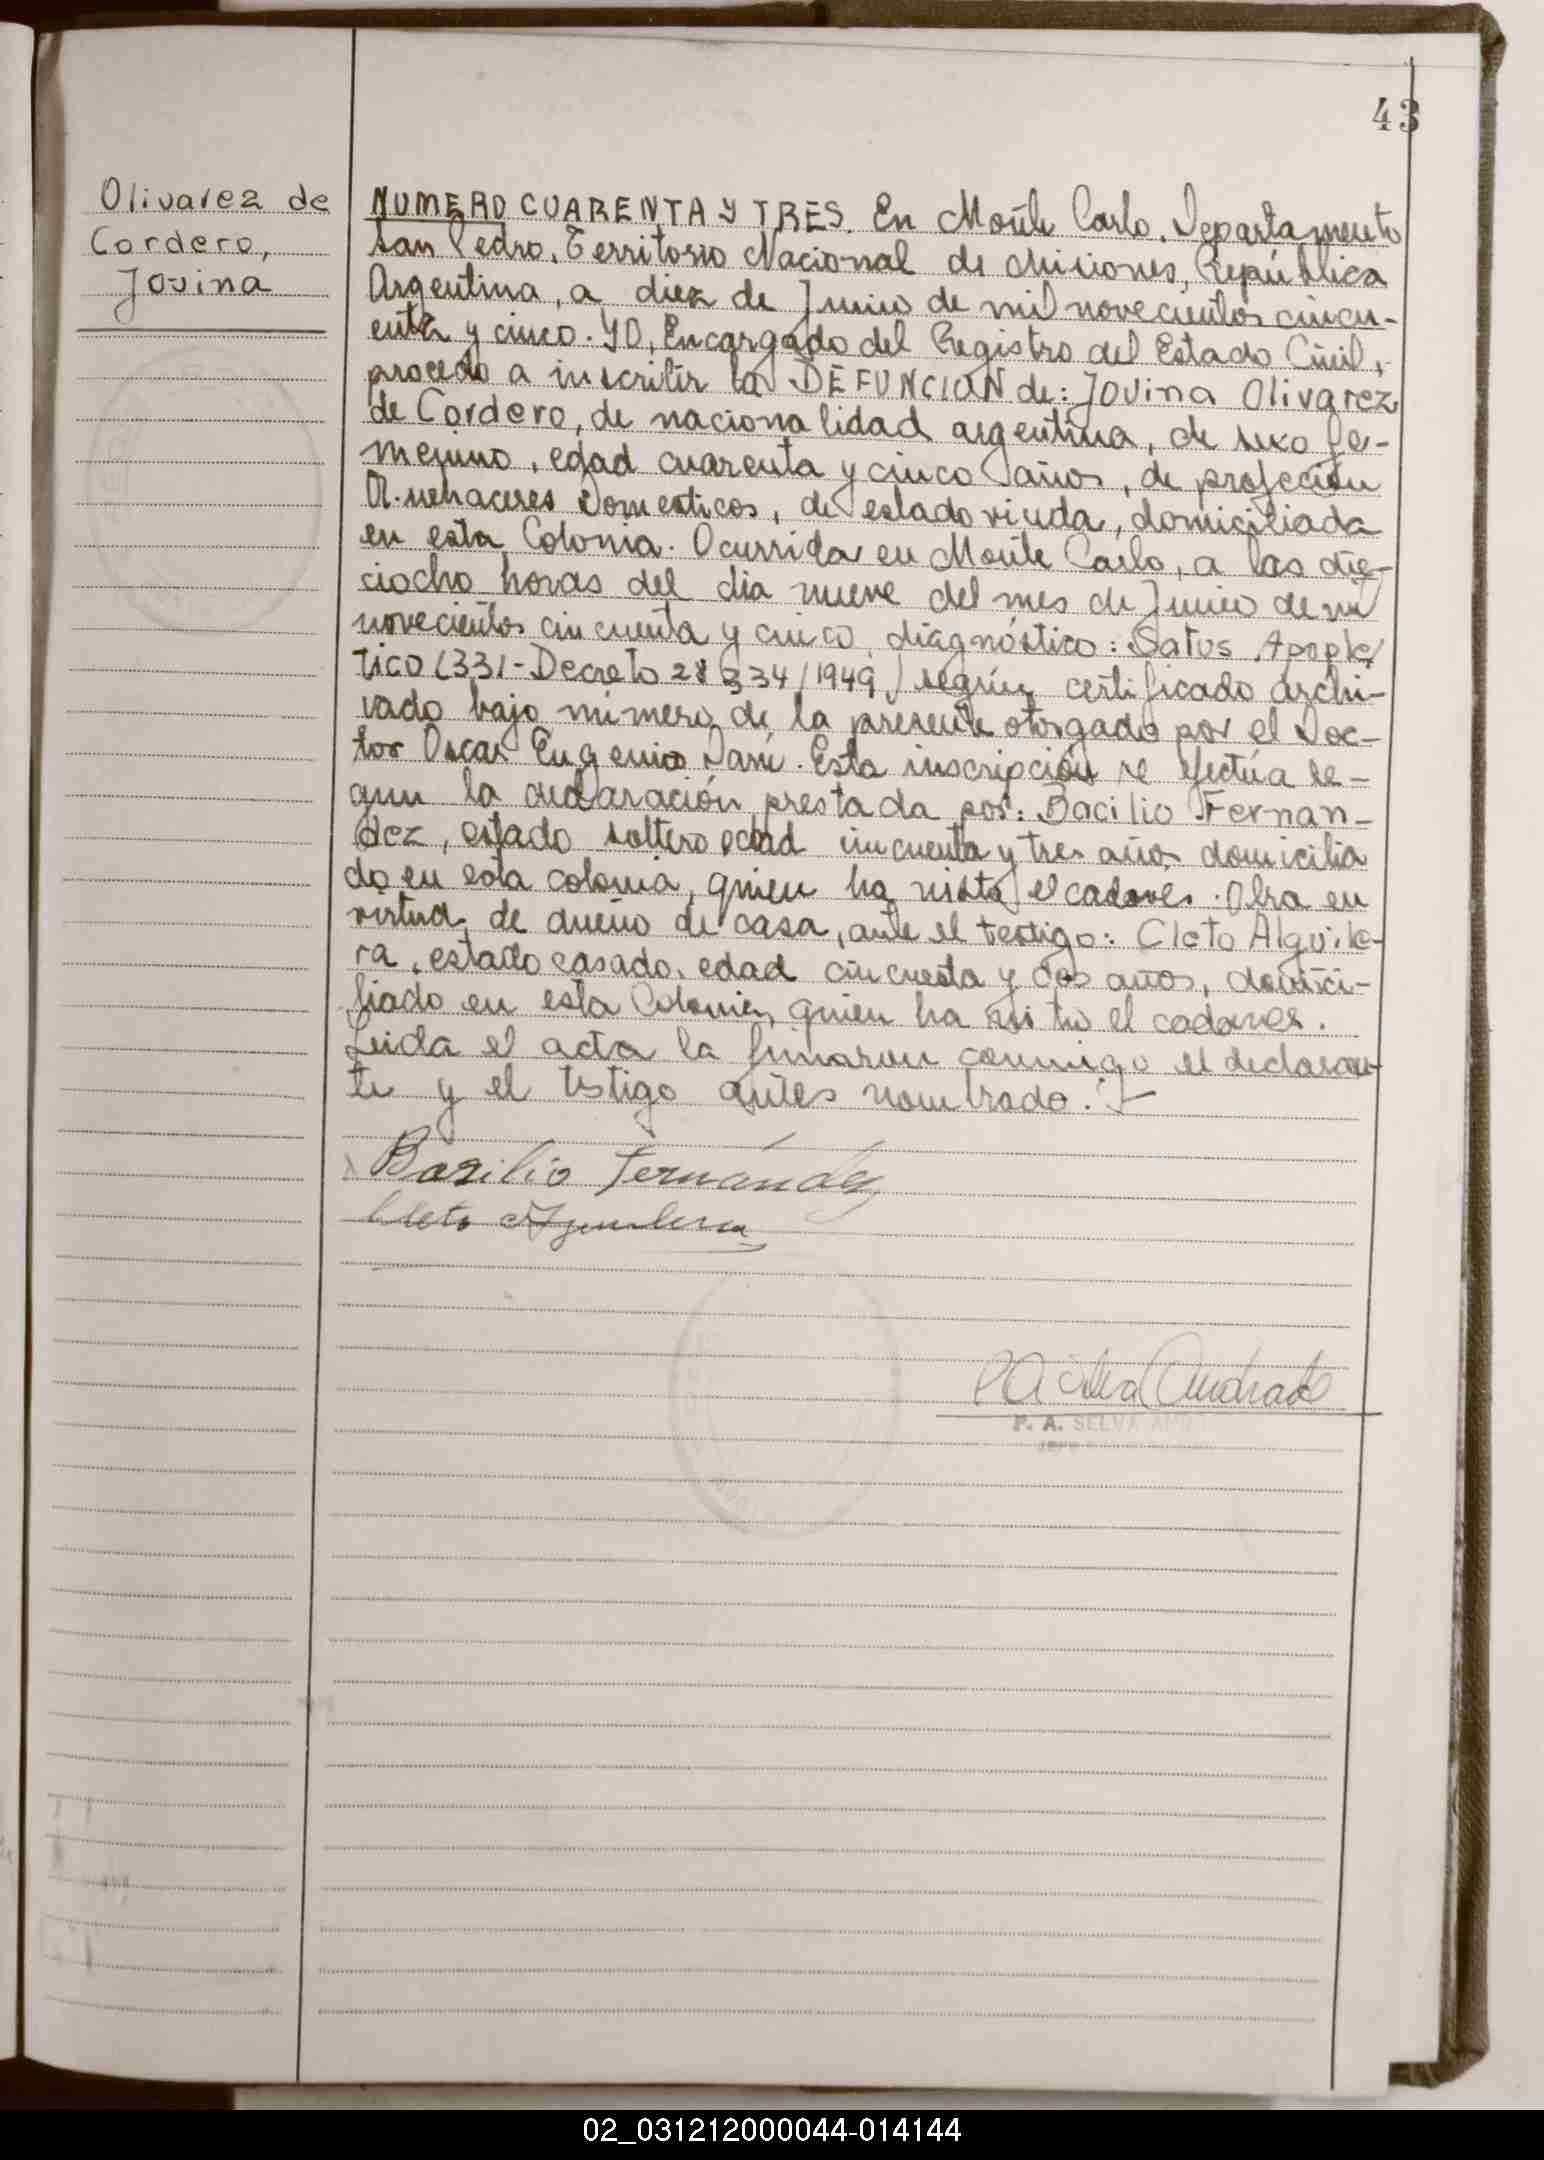 43
Olivarez de
Cordero,
Jovina
NUMERO CUARENTA Y TRES. En Monte Carlo, Departamento
San Pedro, Territorio Nacional de Misiones, República
Argentina, a diez de Junio de mil novecientos cincu-
enta y cinco. YO, Encargado del Registro del Estado Civil,
procedo a inscribir la DEFUNCION de: Jovina Olivarez
de Cordero, de nacionalidad argentina, de sexo fe-
menino, edad cuarenta y cinco años, de profeción
Quehaceres Domesticos, de estado viuda, domiciliada
en esta Colonia. Ocurrida en Monte Carlo, a las die-
ciocho horas del dia nueve del mes de Junio de mil
novecientos cincuenta y cinco, diagnóstico: Satus Apople/
tico (331-Decreto 28334/1949) según certificado archi-
vado bajo número de la presente otorgado por el Doc-
tor Oscar Eugenio. Esta inscripción se efectúa se-
gun la declaración prestada por: Bacilio Fernan-
dez, estado soltero edad cincuenta y tres años domicilia
do en esta colonia, quien ha visto el cadaver. Obra en
virtud de dueño de casa, ante el testigo: Cleto Alguile-
ra, estado casado, edad cincuenta y dos años, domici-
liado en esta Colonia, quien ha visto el cadaver.
Leida el acta la firmaron conmigo el declaran-
te y el testigo antes nombrado.-
Basilio Fernández
Cleto Aguilera
P A Selva Andrade
P. A. SELVA
02_031212000044-014144